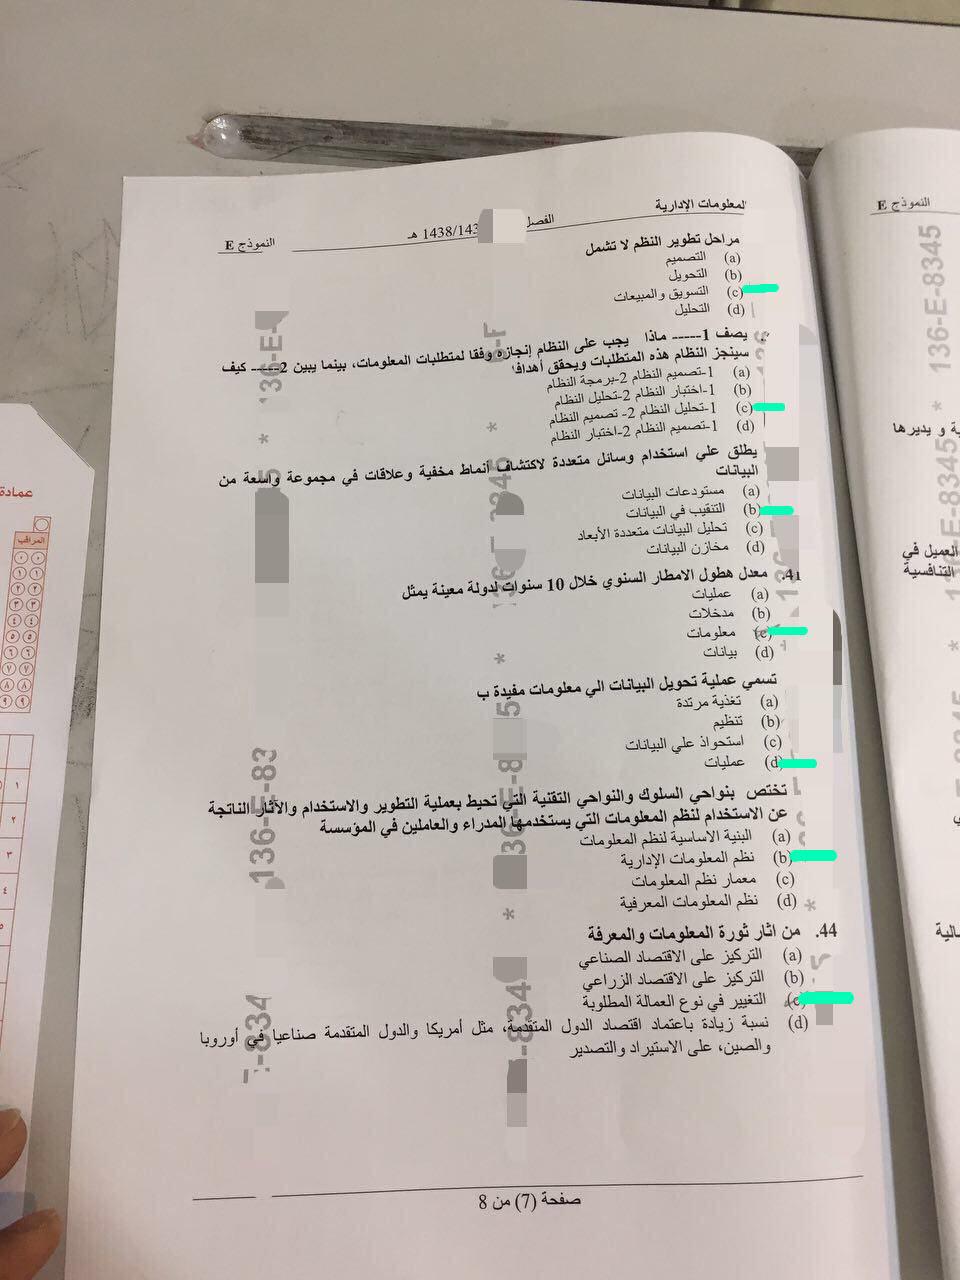 المعلومات الإدارية
الفصل 1438/143 هـ
النموذج E
مراحل تطوير النظم لا تشمل
(a) التصميم
(b) التحويل
(c) التسويق والمبيعات
(d) التحليل
يصف 1----- ماذا يجب على النظام إنجازه وفقا لمتطلبات المعلومات، بينما يبين 2----- كيف
سينجز النظام هذه المتطلبات ويحقق أهدافه
(a) 1-تصميم النظام 2-برمجة النظام
(b) 1-اختبار النظام 2-تحليل النظام
(c) 1-تحليل النظام 2- تصميم النظام
(d) 1-تصميم النظام 2-اختبار النظام
يطلق علي استخدام وسائل متعددة لاكتشاف أنماط مخفية وعلاقات في مجموعة واسعة من
البيانات
(a) مستودعات البيانات
(b) التنقيب في البيانات
(c) تحليل البيانات متعددة الأبعاد
(d) مخازن البيانات
41. معدل هطول الامطار السنوي خلال 10 سنوات لدولة معينة يمثل
(a) عمليات
(b) مدخلات
(c) معلومات
(d) بيانات
تسمي عملية تحويل البيانات الي معلومات مفيدة ب
(a) تغذية مرتدة
(b) تنظيم
(c) استحواذ علي البيانات
(d) عمليات
تختص بنواحي السلوك والنواحي التقنية التي تحيط بعملية التطوير والاستخدام والآثار الناتجة
عن الاستخدام لنظم المعلومات التي يستخدمها المدراء والعاملين في المؤسسة
(a) البنية الاساسية لنظم المعلومات
(b) نظم المعلومات الإدارية
(c) معمار نظم المعلومات
(d) نظم المعلومات المعرفية
44. من اثار ثورة المعلومات والمعرفة
(a) التركيز على الاقتصاد الصناعي
(b) التركيز على الاقتصاد الزراعي
(c) التغيير في نوع العمالة المطلوبة
(d) نسبة زيادة باعتماد اقتصاد الدول المتقدمة، مثل أمريكا والدول المتقدمة صناعيا في أوروبا
والصين، على الاستيراد والتصدير
صفحة (7) من 8
النموذج E
136-E-8345
ة و يديرها
العميل في
التنافسية
الية
عمادة
المراقب